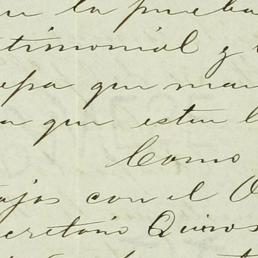 la prueba
timonial y
epa que man
a que estan l
Como
ajos con el O
cretario Quiros